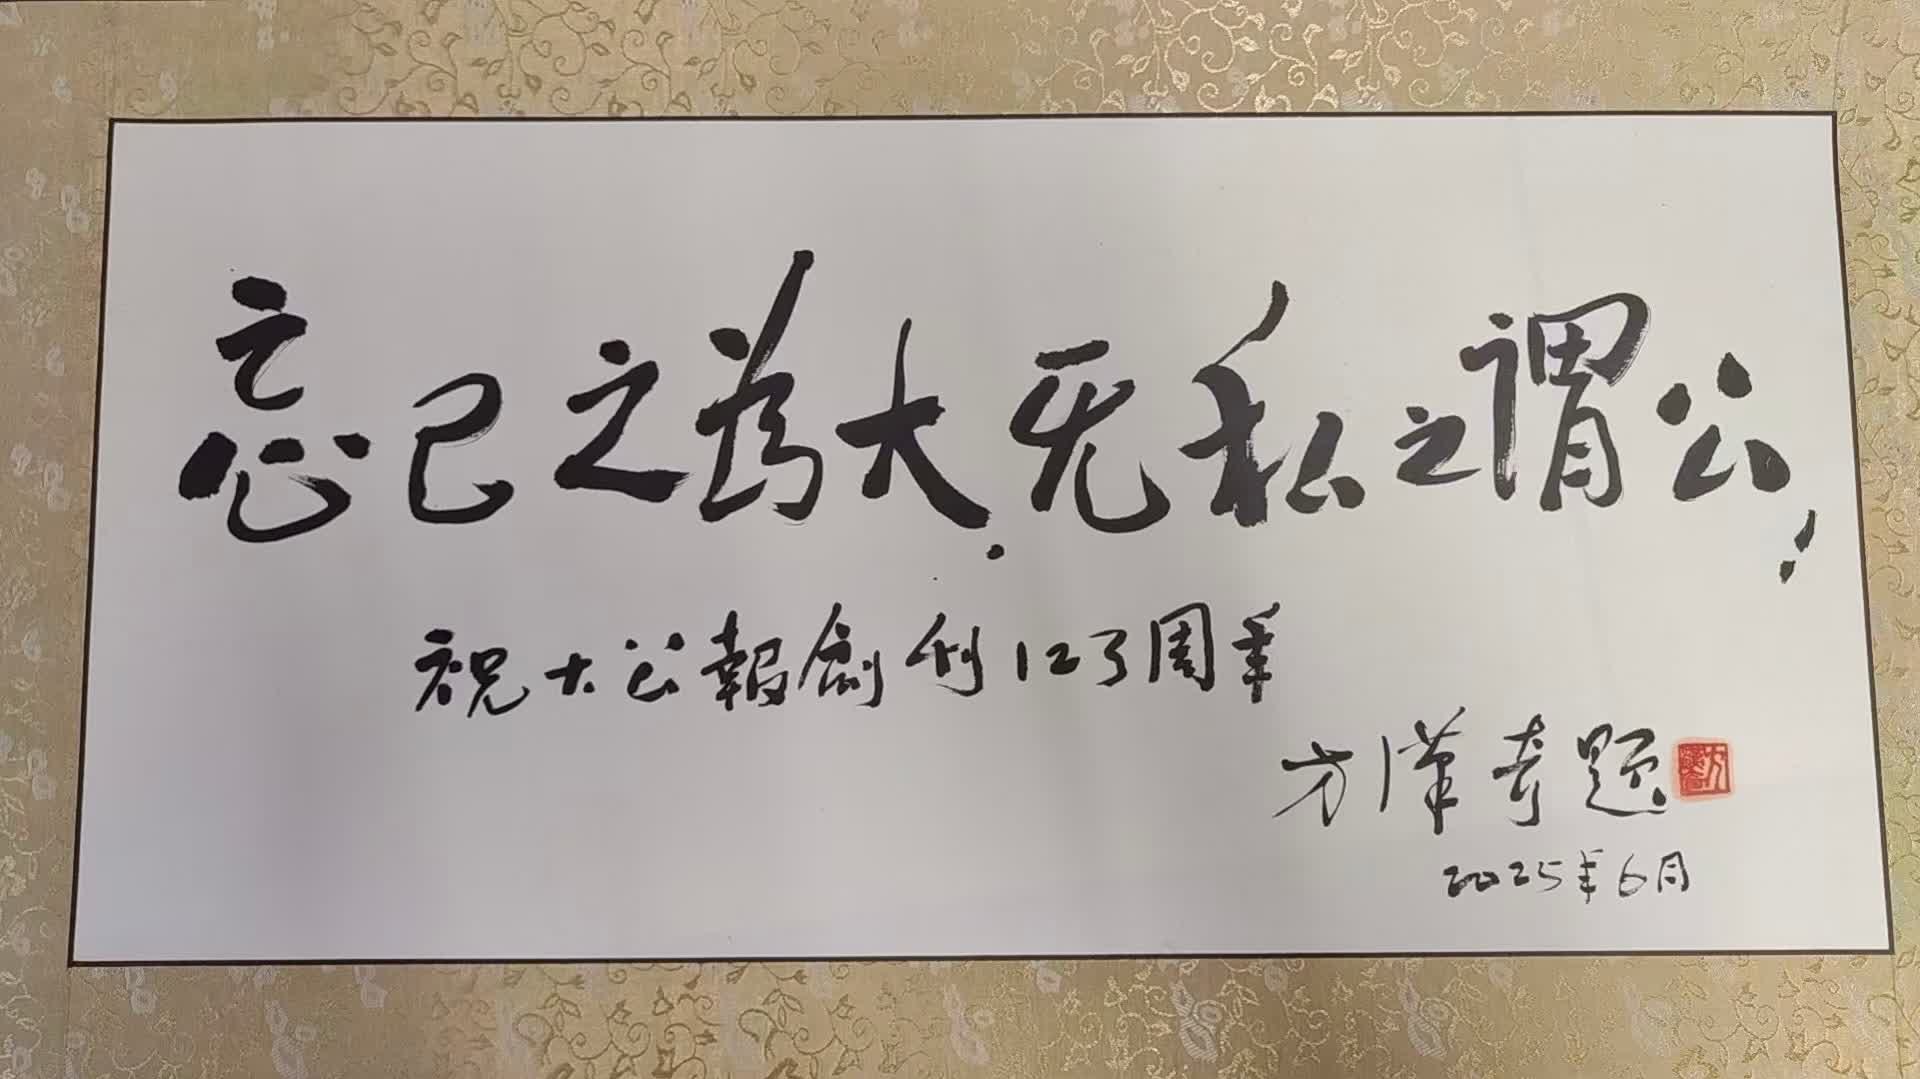 忘己之为大.无私之谓公!
祝大公報創刊123周年
方漢奇题
2025年6月